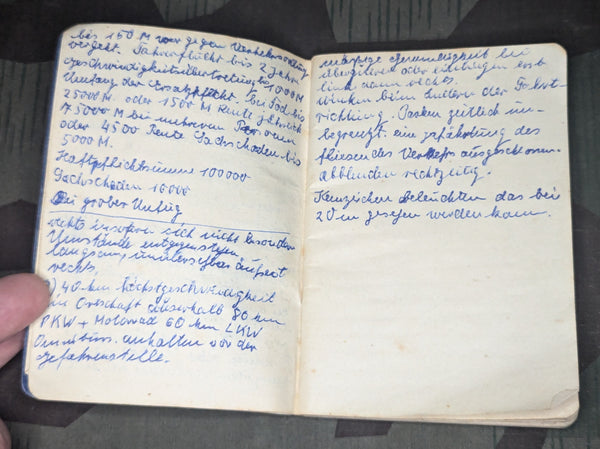 bis 150 M wer gegen Verkehrsordnung
vergeht. Fahrerflucht bis 2 Jahre
Geschwindigkeitsübertretung bis 1000 M
Umfang der Ersatzpflicht. bei Tod bis
25000 M. oder 1500 M Rente jährlich
75000 M bei mehreren Personen
oder 4500 Rente Sachschaden bis
5000 M.
Haftpflichtsumme 100000
Sachschaden 10000
Bei grober Unfug
rechts insofern sich nicht besondere
Umstände entgegenstehen
langsam, unübersehbar äußerst
rechts,
40 km Höchstgeschwindigkeit
in Ortschaft außerhalb 80 km
PKW + Motorrad 60 km LKW
Omnibus. anhalten vor der
Gefahrenstelle.
mäßige Geschwindigkeit bei
oder einbiegen erst
links dann rechts.
winken beim ändern der Fahrt-
richtung. Parken zeitlich un-
begrenzt. eine Gefährdung des
fliesendes Verkehrs ausgeschlossen
abblenden rechtzeitig.
Kenzeichen beleuchten das bei
20 m gesehen werden kann.